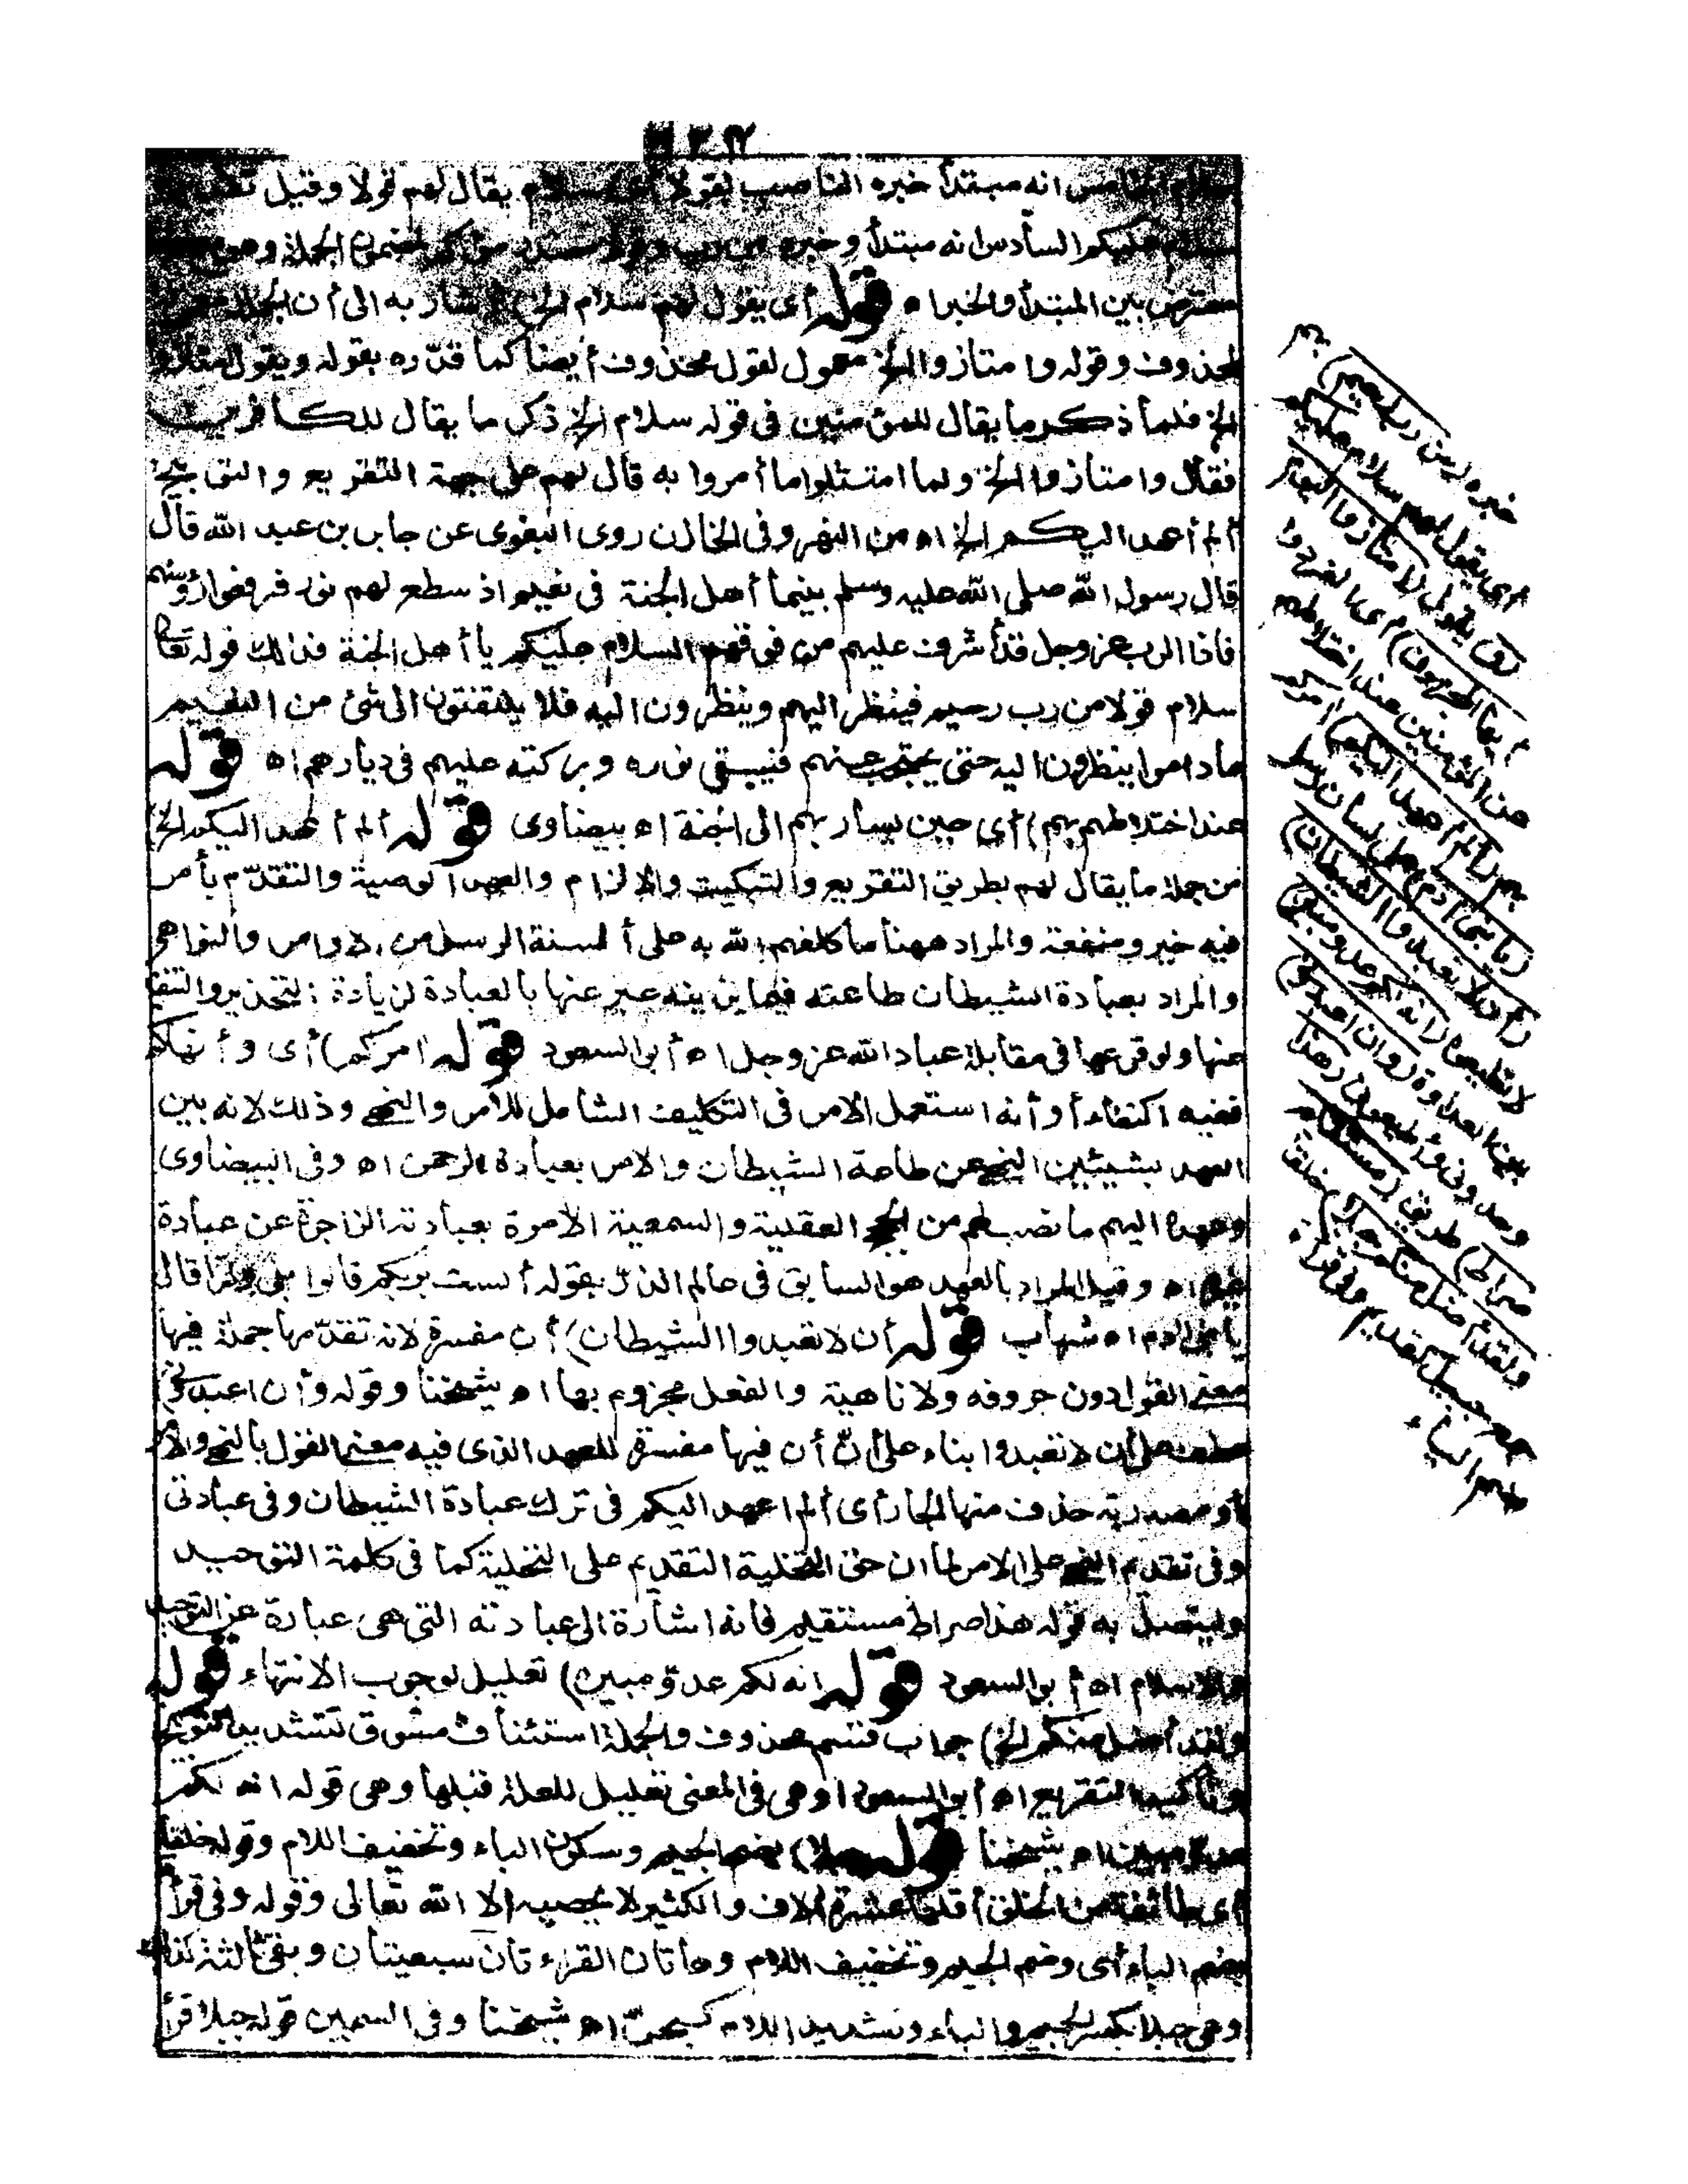 انه مبتدأ خبره الناصب لقولا أى سلام يقال لهم قولا وقيل
سلام عليكم السادس انه مبتدأ وخبره من رب وقولا مصدر مؤكد لمضمون الجملة وهو
معترض بين المبتدأ والخبر اه قوله أى يقول لهم سلام الخ) أشار به الى أن الجملة
لمحذوف وقوله وامتازوا الخ معمول لقول محذوف أيضا كما قدّره بقوله ويقول امتازوا
الخ فلما ذكر ما يقال للمؤمنين فى قوله سلام الخ ذكر ما يقال للكافرين
فقال وامتازوا الخ ولما امتثلوا ما أمروا به قال لهم على جهة التقريع والتوبيخ
ألم أعهد اليكم الخ اه من النهر وفى الخازن روى البغوى عن جابر بن عبد الله قال
قال رسول الله صلى الله عليه وسلم بينما أهل الجنة فى نعيم اذ سطع لهم نور فرفعوا رؤسهم
فاذا الرب عز وجل قد أشرف عليهم من فوقهم السلام عليكم يا أهل الجنة فذلك قوله تعالى
سلام قولا من رب رحيم فينظر اليهم وينظرون اليه فلا يلتفتون الى شئ من النعيم
ماداموا ينظرون اليه حتى يحتجب عنهم فيبقى نوره وبركته عليهم فى ديارهم اه قوله
عند اختلاطهم بهم) أى حين يسار بهم الى الجنة اه بيضاوى قوله ألم أعهد اليكم الخ)
من جملة ما يقال لهم بطريق التقريع والتبكيت والالزام والعهد الوصية والتقدّم بأمر
فيه خير ومنفعة والمراد ههنا ما كلفهم الله به على ألسنة الرسل من الاوامر والنواهى
والمراد بعبادة الشيطان طاعته فيما يزينه عبر عنها بالعبادة لزيادة التحذير والتنفير
عنها ولوقوعها فى مقابلة عباد الله عز وجل اه أبو السعود قوله امركم) أى وأنهاكم
ففيه اكتفاء أو أنه استعمل الامر فى التكليف الشامل للأمر والنهى وذلك لانه بين
العهد بشيئين النهى عن طاعة الشيطان والامر بعبادة الرحمن اه وفى البيضاوى
وعهده اليهم ما نصب لهم من الحجج العقلية والسمعية الآمرة بعبادته الزاجرة عن عبادة
غيره اه وقيل المراد بالعهد هو السابق فى عالم الذر بقوله ألست بربكم قالوا بلى ولذا قال
يا بنى آدم اه شهاب قوله أن لا تعبدوا الشيطان) أن مفسرة لانه تقدّمها جملة فيها
معنى القول دون حروفه ولا ناهية والفعل مجزوم بها اه شيخنا وقوله وأن اعبدونى
عطف على أن لا تعبدوا بناء على أنّ أن فيها مفسرة للعهد الذى فيه معنى القول بالنهى والامر
أو مصدرية حذف منها الجار أى ألم اعهد اليكم فى ترك عبادة الشيطان وفى عبادتى
وفى تقديم النهى على الامر لما ان حق التخلية التقديم على التحلية كما فى كلمة التوحيد
وليتصل به قوله هذا صراط مستقيم فانه اشارة الى عبادته التى هى عبارة عن التوحيد
والاسلام اه أبو السعود قوله انه لكم عدوّ مبين) تعليل لوجوب الانتهاء قوله
ولقد أضل منكم الخ) جواب قسم محذوف والجملة استئناف مسوق لتشديد التوبيخ
وتأكيد التقريع اه أبو السعود أو هى فى المعنى تعليل للعلة قبلها وهى قوله انه لكم
عدوّ مبين اه شيخنا قوله جبلا) بضم الجيم وسكون الباء وتخفيف اللام وقوله خلقا
أى طائفة من الخلق أقلها عشرة آلاف والكثير لا يحصيه إلا الله تعالى وقوله وفى قراءة
بضم الباء أى وضم الجيم وتخفيف اللام وهاتان القراءتان سبعيتان وبقى ثالثة كذلك
وهى جبلا بكسر الجيم والباء وتشديد اللام كسجلّ اه شيخنا وفى السمين قوله جبلا قرأ
خبره (من رب رحيم) بهم
أى يقول لهم سلام عليكم
(و) يقول (امتازوا اليوم
أيها المجرمون) أى انفردوا
عن المؤمنين عند اختلاطهم
بهم (ألم أعهد اليكم) آمركم
(يا بنى آدم) على لسان رسلى
(أن لا تعبدوا الشيطان)
لا تطيعوه (انه لكم عدو مبين)
بين العداوة (وأن اعبدونى)
وحدونى وأطيعونى (هذا
صراط) طريق (مستقيم
ولقد أضل منكم جبلا) خلقا
جمع جبيل كقديم وفى قراءة
بضم الباء